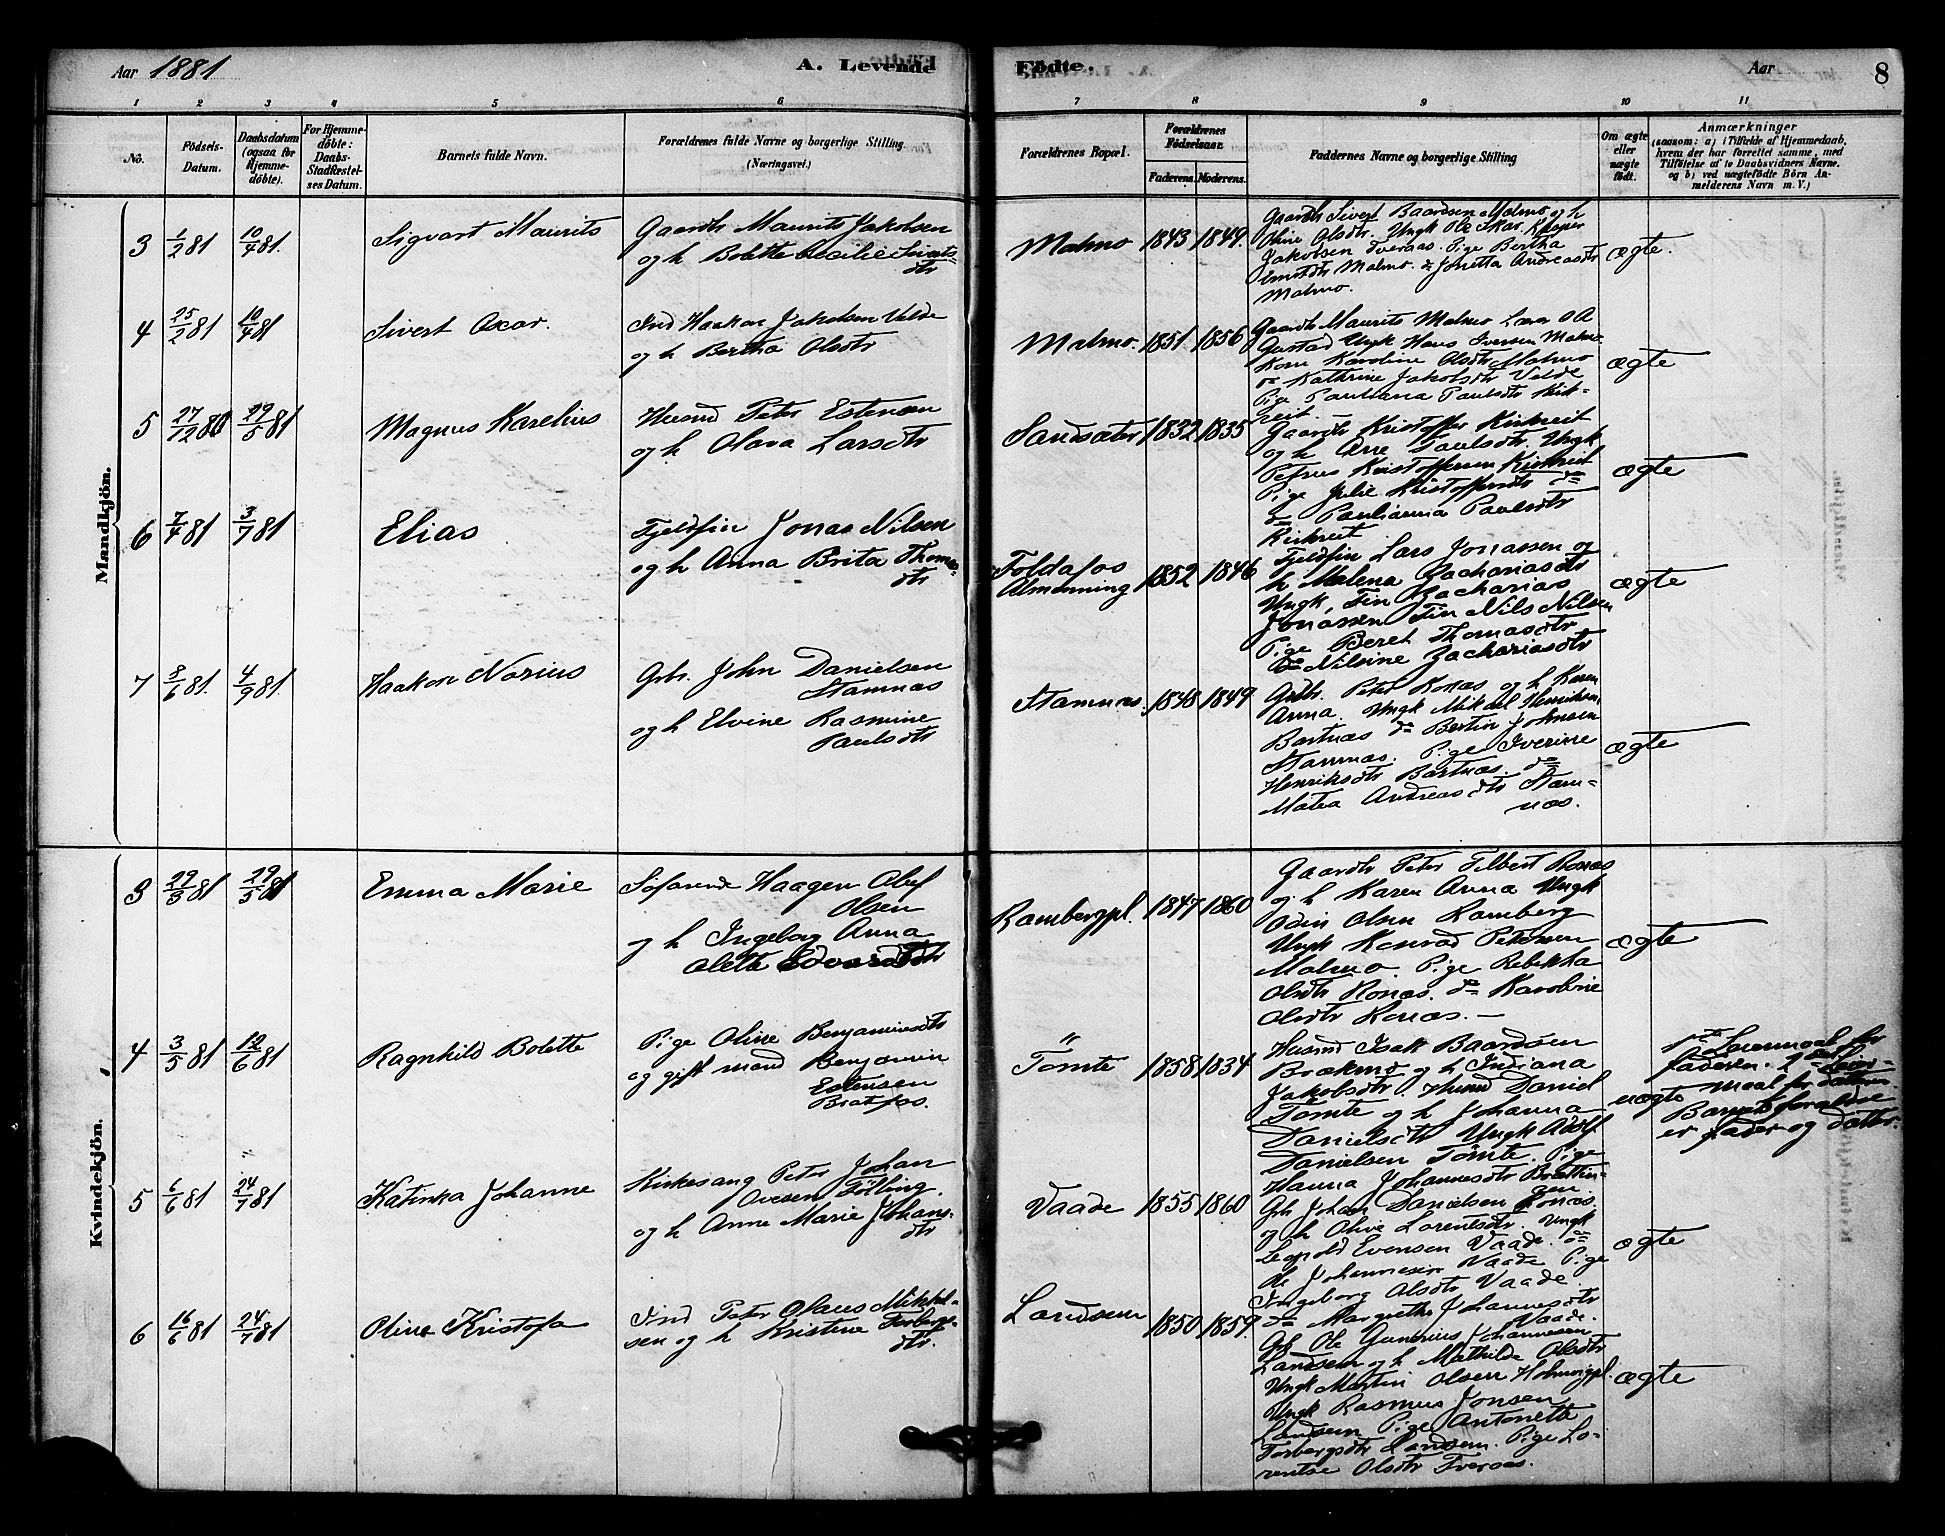 Aar 1881
A. Levende
Födte.
Aar
8
1 2 3 4 5 6 7 8 9 10 11
No.
Födsels-
Datum.
Daabsdatum
(ogsaa for
Hjemme-
döbte).
For Hjemme-
döbte:
Daabs-
Stadfæstel-
ses Datum.
Barnets fulde Navn.
Forældrenes fulde Navne og borgerlige Stilling
(Næringsvei.)
Forældrenes Bopæl.
Forældrenes
Födselsaar.
Faderens.
Moderens.
Faddernes Navne og borgerlige Stilling
Om ægte
eller
uægte
födt.
Anmærkninger
(saasom: a) i Tilfælde af Hjemmedaab,
hvem der har forrettet samme, med
Tilföielse af to Daabsvidners Navne.
og b) ved uægtefödte Börn An-
melderens Navn m. V.)
Mandkjön.
3 1/2 81 10/4 81.
Sigvart Maurits
Gaardb Maurits Jakobsen
og h Bolette Cecilie Siverts-
dtr
Malmo 1843 1849.
Gaardb Sivert Baardsen Malmo og h
Oline Olsdtr. Ungk Ole Skar. Kasper
Jakobsen Tveraas. Pige Bertha
Malmo. do Jonetta Andreasdtr
Malmo.
ægte.
4 25/2 81 10/4 81
Sivert Oxar.
Ind Haakon Jakobsen Velde
og h Bertha Olsdtr
Malmo. 1851 1856
Gaardb Maurits Malmo Lærer O A
Gustad Ungk Hans Iversen Malmo.
Kone Karoline Olsdtr Malmo
do Kathrine Jakobsdtr Velde
Pige Pauliana Paulsdtr Kirk-
reit.
ægte
5 27/12 80 29/5 81
Magnus Karelius
Husmd Peter Estensen
og h Olava Larsdtr
Sandsæter 1832 1835
Gaardb Kristoffer Kirkreit
og h Ane Paulsdtr. Ungk
Petrus Kristoffersen Kirkreit
Pige Julie Kristoffersdtr do
do Paulianna Paulsdtr
Kirkreit
ægte
6 7/4 81 3/7 81
Elias
Fjeldfin Jonas Nilsen
og h Anna Brita Thomas-
dtr
Foldafos
Almenning 1852 1846
Fjeldfin Lars Jonassen og
h Malena Zachariasdtr
Ungk, Fin Zacharias
Jonassen Fin Nils Nilsen
Pige Beret Thomasdtr
do Nilsine Zachariasdtr
ægte
7 8/6 81. 4/9 81.
Haakon Norius
Grbr. John Danielsen
Stamnas
og h Elvine Rasmine
Paulsdtr
Stamnas. 1848 1849
Grbr. Peter Konas og h Karen
Anna. Ungk Mikael Henriksen
Bartnas do Bertin Johnsen
Stamnas. Pige Iverine
Henriksdtr Bartnas. do
Matea Andreasdtr Stam-
nas.
ægte
Kvindekjön.
3 29/3 81 29/5 81
Emma Marie
Sofarende Haagen Oluf
Olsen
og h Ingeborg Anna
Olette Edvardsdtr
Rambergpl. 1847 1860
Gaardb Peter Filbert Konas
og h Karen Anna Ungk
Odin Olsen Ramberg
Ungk Konrad Petersen
Malmo. Pige Rebekka
Olsdtr Konas. do Karoline
Olsdtr Konas. —
ægte
4 3/5 81 12/6 81
Ragnhild Bolette
Pige Oline Benjaminsdtr
og gift mand Benjamin
Estensen
Bratfos.
"
Tomte 1858 1834
Husmd Isak Baardsen
Brækmo og h Indiana
Jakobsdtr. Husmd Daniel
Tomte og h Johanna
Danielsdtr Ungk Adolf
Danielsen Tomte. Pige
Hanna Johannesdtr
uægte
1ste Leiermaal for
faderen. 2det Leier-
maal for datteren.
Barnets forældre
er fader og datter.
5 6/6 81 24/7 81
Katinka Johanne
Kirkesang Peter Johan
Ovesen Fölling.
og h Anne Marie Johans-
dtr
Vaade 1855 1860
Grb Johan Danielsen Konas.
og h Olive Lorentsdtr. Ungk
Leopold Evensen Vaade. do
Ole Johannesen Vaade Pige
Ingeborg Olsdtr Vaade.
do Margrethe Johannesdtr
Vaade.
ægte
6 16/6 81 24/7 81
Oline Kristofa
Ind Peter Olaus Mikkel-
sen og h Kristine Torbergs-
dtr.
Landsem 1850 1859
Grb Ole Gunerius Johannesen
Landsem og h Mathilde Olsdtr
Ungk Martin Olsen Holmvigpl.
Ungk Rasmus Jonsen
Landsem Pige Antonette
Torbergsdtr Landsem. Pige Lo-
rentse Olsdtr Tveraas.
ægte